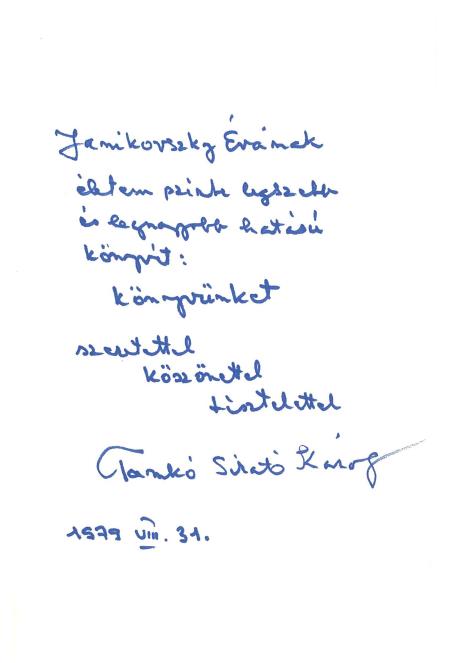 Janikovszky Évának
életem szinte legszebb
és legnagyobb hatású
könyvét:
könyvünket
szeretettel
köszönettel
tisztelettel
Tamkó Sirató Károly
1979 VIII. 31.